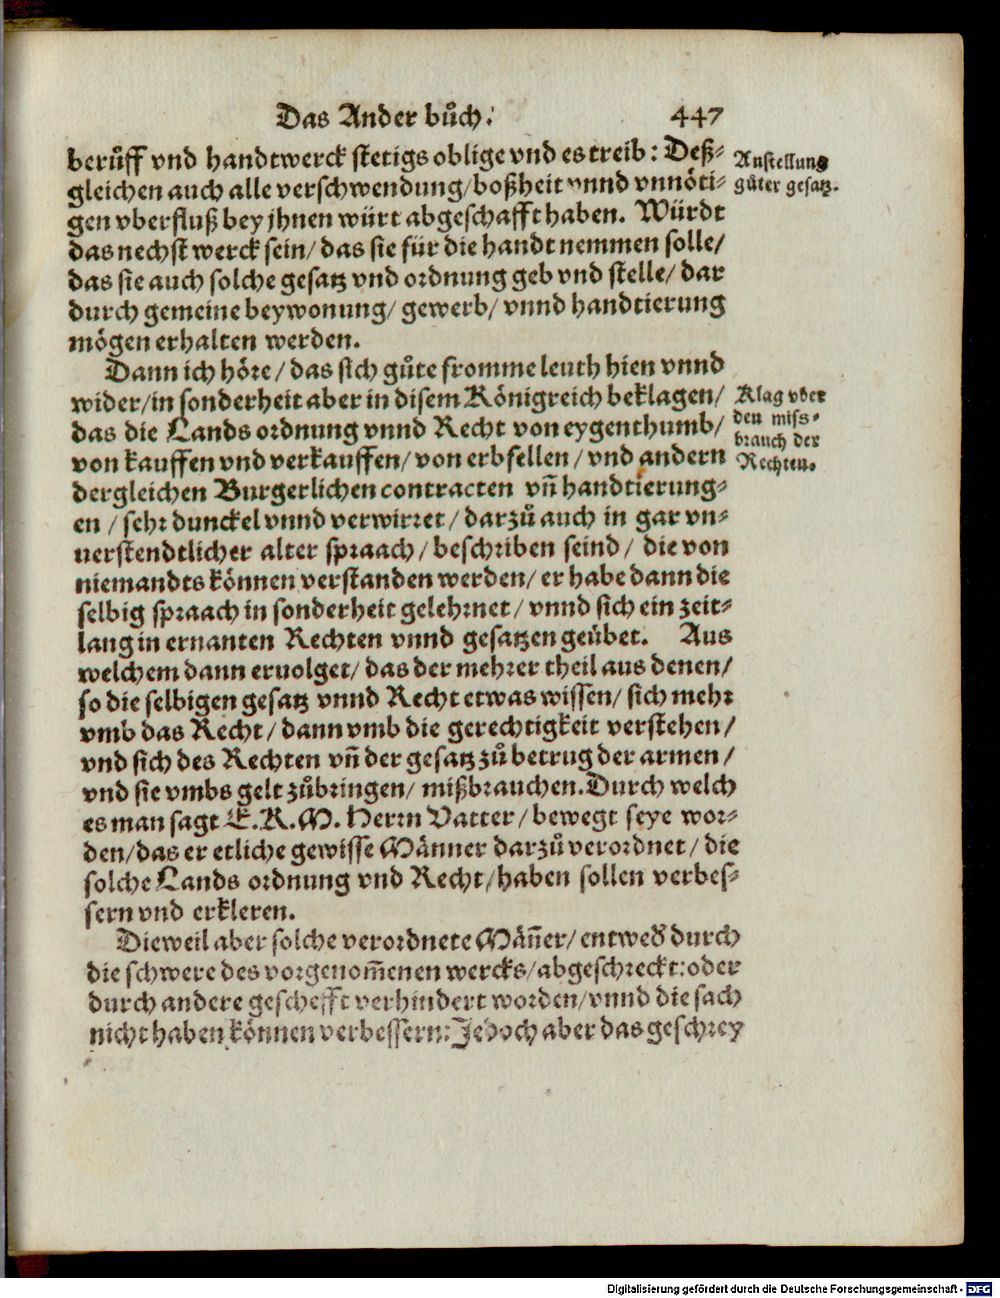 Das Ander bůch. 447
berůff vnd handtwerck stetigs oblige vnd es treib: Deß-
gleichen auch alle verschwendung/ boßheit vnnd vnnöti-
gen vberfluß bey jhnen würt abgeschafft haben. Würdt
das nechst werck sein/ das sie für die handt nemmen solle/
das sie auch solche gesatz vnd ordnung geb vnd stelle/ dar
durch gemeine beywonung/ gewerb/ vnnd handtierung
mögen erhalten werden.
Anstellung
gůter gesatz.
Dann ich höre/ das sich gůte fromme leuth hien vnnd
wider/ in sonderheit aber in disem Königreich beklagen/
das die Lands ordnung vnnd Recht von eygenthumb/
von kauffen vnd verkauffen/ von erbfellen/ vnd andern
dergleichen Burgerlichen contracten vñ handtierung-
en/ sehr dunckel vnnd verwirret/ darzů auch in gar vn-
uerstendtlicher alter spraach/ beschriben seind/ die von
niemandts können verstanden werden/ er habe dann die
selbig spraach in sonderheit gelehrnet/ vnnd sich ein zeit-
lang in ernanten Rechten vnnd gesatzen geübet. Aus
welchem dann eruolget/ das der mehrer theil aus denen/
so die selbigen gesatz vnnd Recht etwas wissen/ sich mehr
vmb das Recht/ dann vmb die gerechtigkeit verstehen/
vnd sich des Rechten vñ der gesatz zů betrug der armen/
vnd sie vmbs gelt zůbringen/ mißbrauchen. Durch welch
es man sagt E. K. M. Herrn Vatter/ bewegt seye wor-
den/ das er etliche gewisse Männer darzů verordnet/ die
solche Lands ordnung vnd Recht/ haben sollen verbes-
sern vnd erkleren.
Klag vber
den miss-
brauch der
Rechten.
Dieweil aber solche verordnete Mäñer/ entwed durch
die schwere des vorgenom̃enen wercks/ abgeschreckt: oder
durch andere geschefft verhindert worden/ vnnd die sach
nicht haben können verbessern: Jedoch aber das geschrey
Digitalisierung gefördert durch die Deutsche Forschungsgemeinschaft - DFG